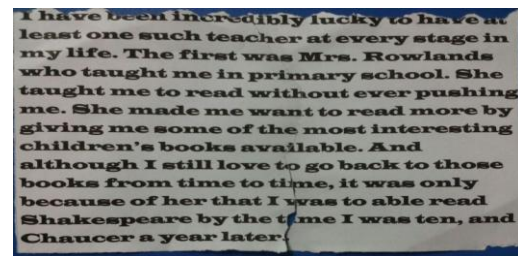 I have been incredibly lucky to have at
least one such teacher at every stage in
my life. The first was Mrs. Rowlands
who taught me in primary school. She
taught me to read without ever pushing
me. She made me want to read more by
giving me some of the most interesting
children's books available. And
although I still love to go back to those
books from time to time, it was only
because of her that I was to able read
Shakespeare by the time I was ten, and
Chaucer a year later.